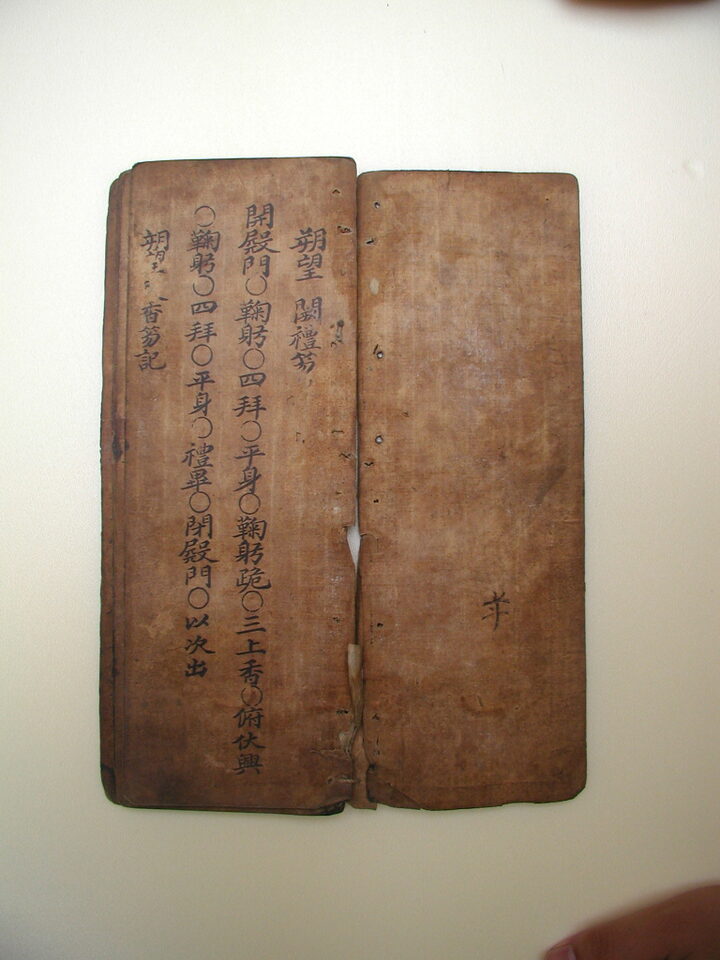 朔望 闕禮笏
開殿門○鞠躬○四拜○平身○鞠躬跪○三上香○俯伏興
○鞠躬○四拜○平身○禮畢○閉殿門○以次出
朔望 香笏記